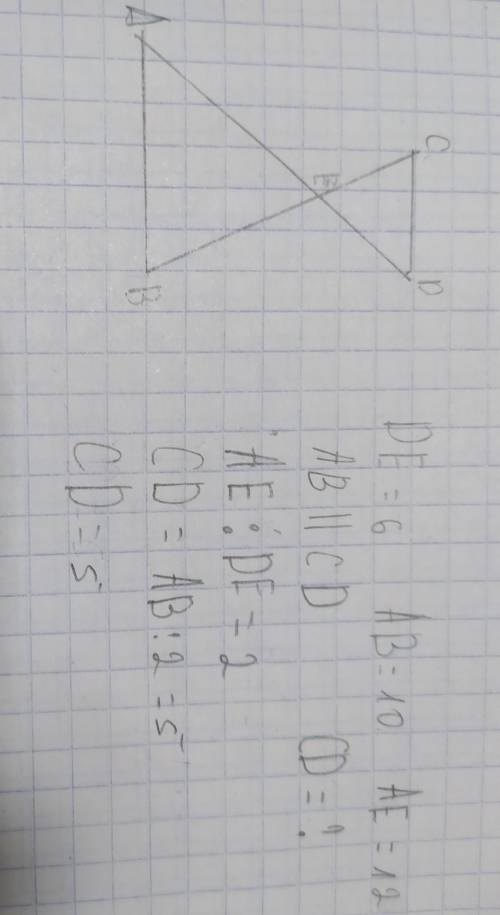 A
B
E
C
D
DE = 6 AB = 10 AE = 12
AB || CD CD = ?
AE : DE = 2
CD = AB : 2 = 5
CD = 5